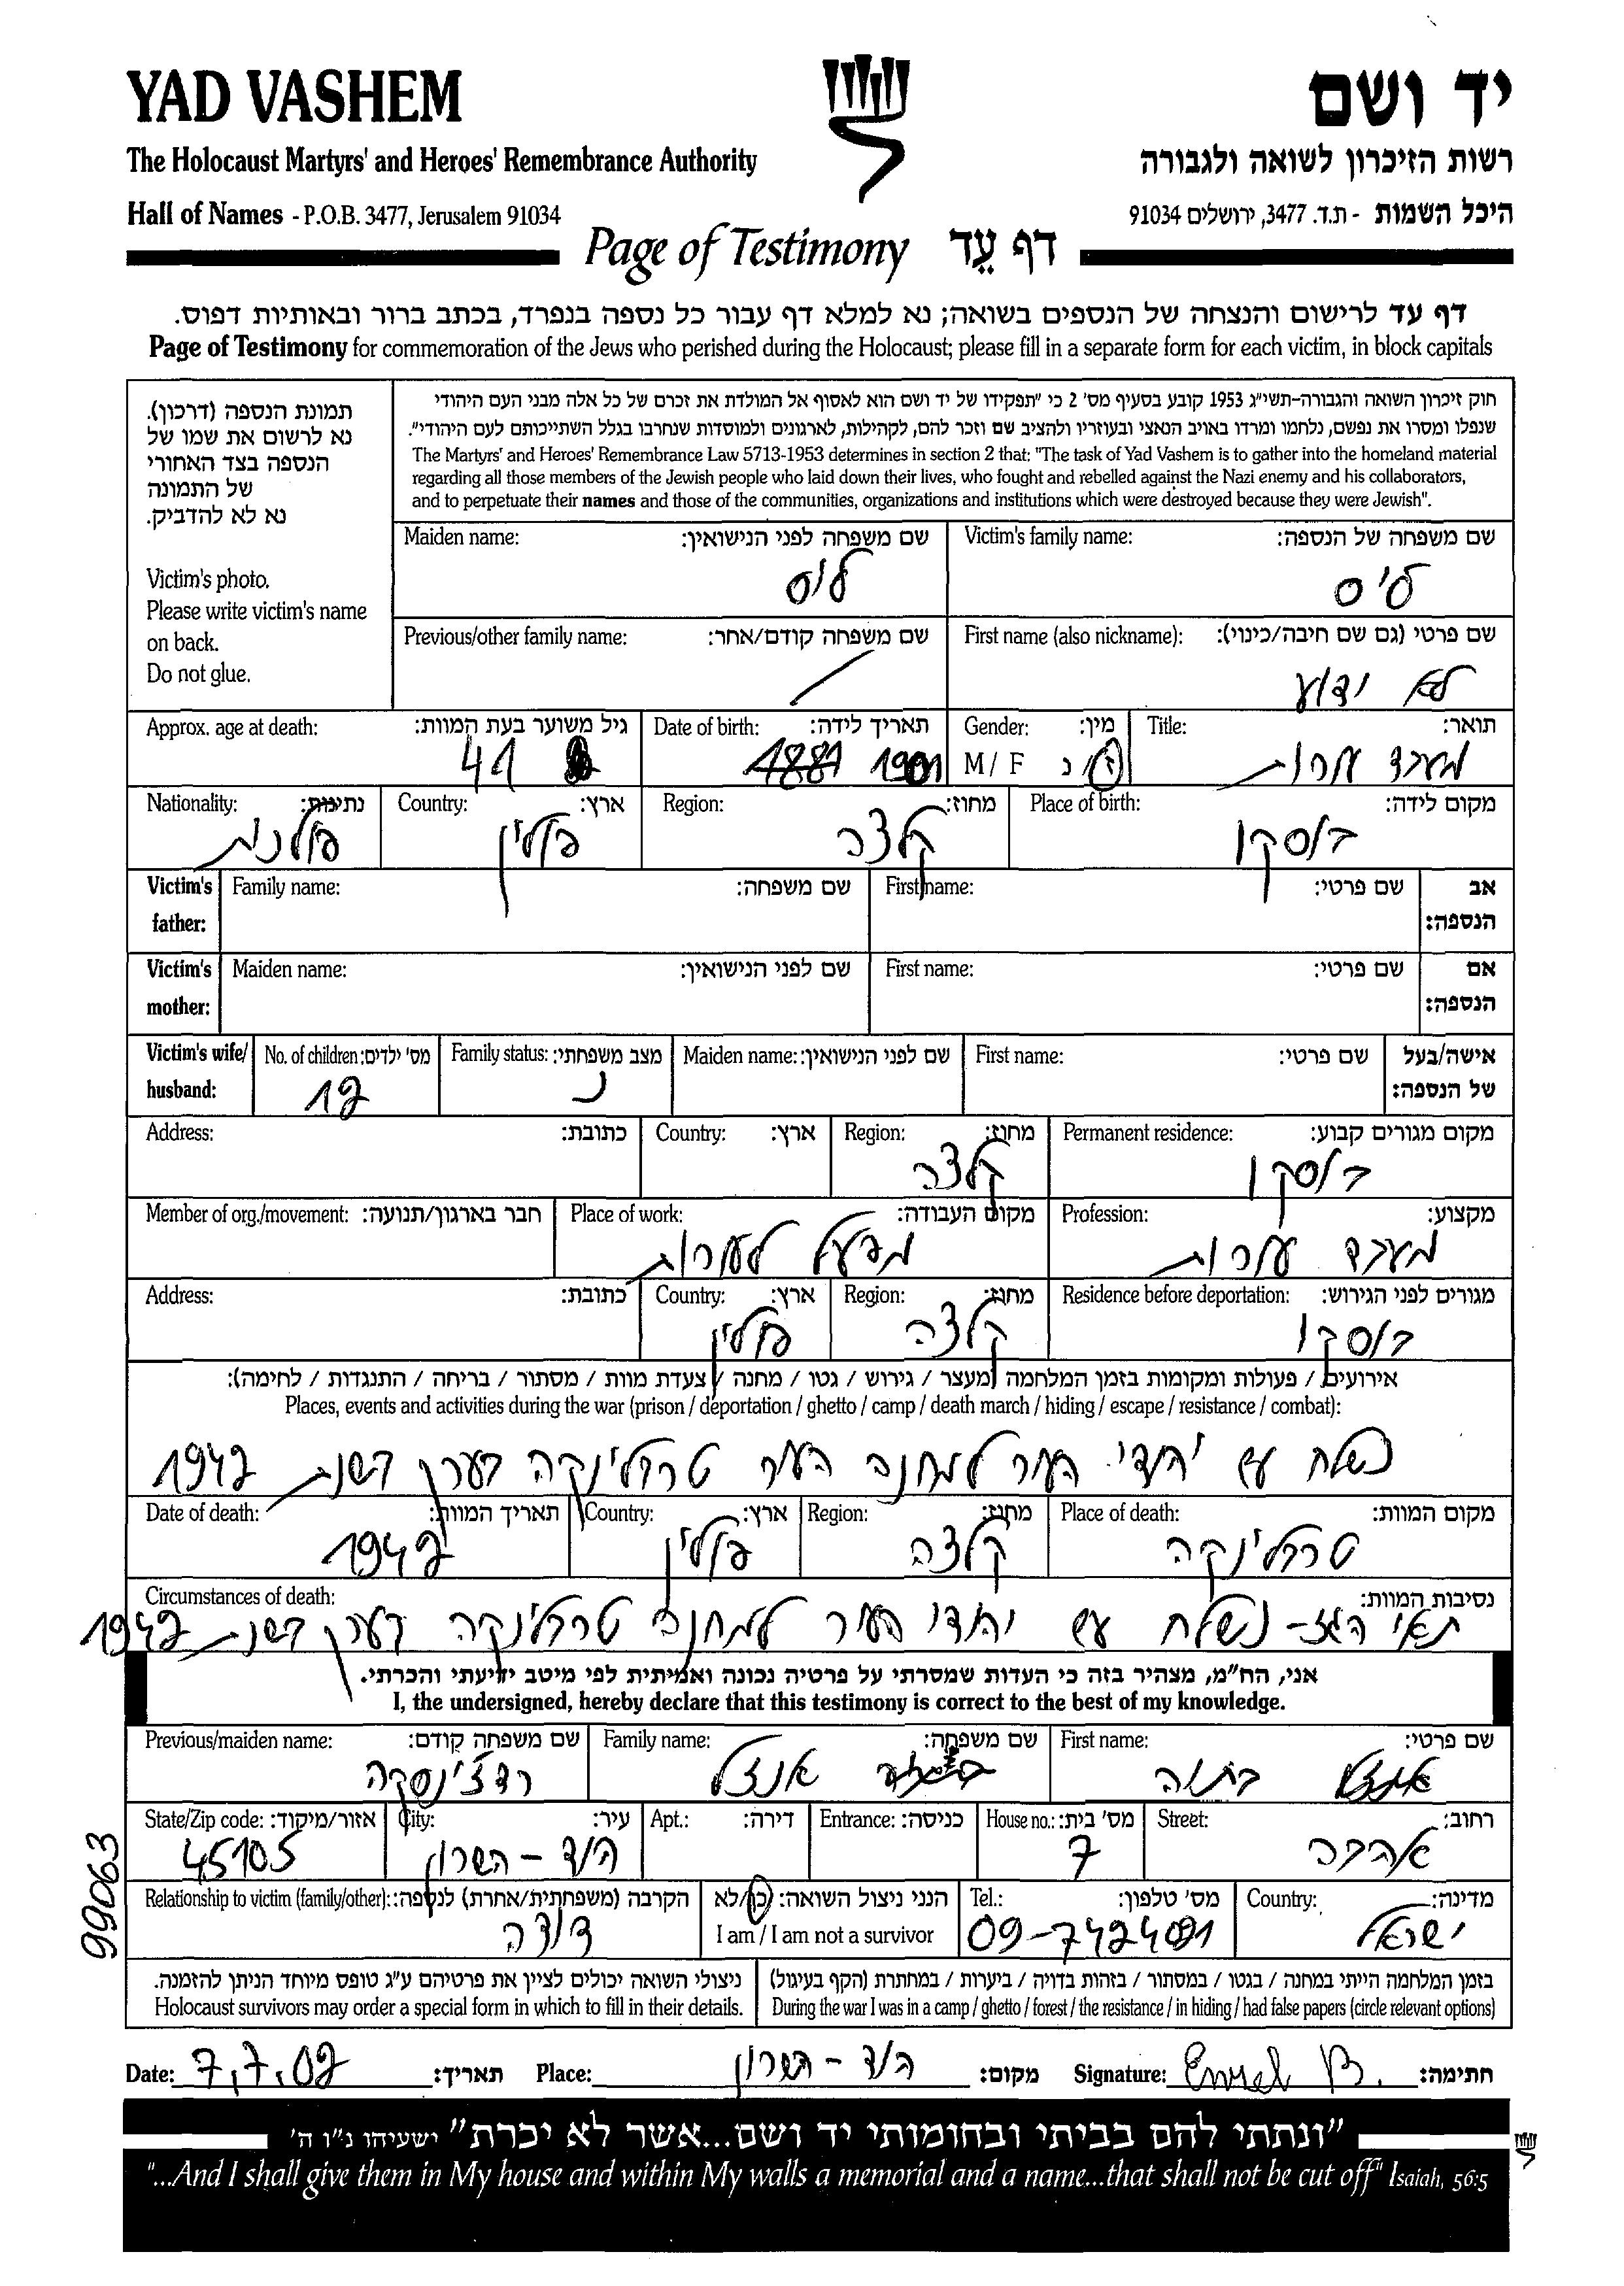 YAD VASHEM
יד ושם
The Holocaust Martyrs' and Heroes' Remembrance Authority
רשות הזיכרון לשואה ולגבורה
Hall of Names - P.O.B. 3477, Jerusalem 91034
היכל השמות - ת.ד. 3477, ירושלים 91034
Page of Testimony דף עֵד
דף עד לרישום והנצחה של הנספים בשואה; נא למלא דף עבור כל נספה בנפרד, בכתב ברור ובאותיות דפוס.
Page of Testimony for commemoration of the Jews who perished during the Holocaust; please fill in a separate form for each victim, in block capitals
תמונת הנספה (דרכון).
נא לרשום את שמו של
הנספה בצד האחורי
של התמונה
נא לא להדביק.
Victim's photo.
Please write victim's name
on back.
Do not glue.
חוק זיכרון השואה והגבורה-תשי"ג 1953 קובע בסעיף מס' 2 כי "תפקידו של יד ושם הוא לאסוף אל המולדת את זכרם של כל אלה מבני העם היהודי
שנפלו ומסרו את נפשם, נלחמו ומרדו באויב הנאצי ובעוזריו ולהציב שם וזכר להם, לקהילות, לארגונים ולמוסדות שנחרבו בגלל השתייכותם לעם היהודי".
The Martyrs' and Heroes' Remembrance Law 5713-1953 determines in section 2 that: "The task of Yad Vashem is to gather into the homeland material
regarding all those members of the Jewish people who laid down their lives, who fought and rebelled against the Nazi enemy and his collaborators,
and to perpetuate their names and those of the communities, organizations and institutions which were destroyed because they were Jewish".
Victim's family name: שם משפחה של הנספה:
Maiden name: שם משפחה לפני הנישואין:
First name (also nickname): שם פרטי (גם שם חיבה/כינוי):
לא ידוע
Previous/other family name: שם משפחה קודם/אחר:
Title: תואר:
מעבד עורות
Gender: מין:
M / F ז/נ
Date of birth: תאריך לידה:
1881 1901
Approx. age at death: גיל משוער בעת המוות:
41
Place of birth: מקום לידה:
בוסקו
Region: מחוז:
קלצה
Country: ארץ:
פולין
Nationality: נתינות:
פולנית
Victim's father: אב הנספה:
First name: שם פרטי:
Family name: שם משפחה:
Victim's mother: אם הנספה:
First name: שם פרטי:
Maiden name: שם לפני הנישואין:
Victim's wife/ husband: אישה/בעל של הנספה:
First name: שם פרטי:
Maiden name: שם לפני הנישואין:
Family status: מצב משפחתי:
נ
No. of children: מס' ילדים:
12
Permanent residence: מקום מגורים קבוע:
בוסקו
Region: מחוז:
קלצה
Country: ארץ:
Address: כתובת:
Profession: מקצוע:
מעבד עורות
Place of work: מקום העבודה:
מפעל לעורות
Member of org./movement: חבר בארגון/תנועה:
Residence before deportation: מגורים לפני הגירוש:
בוסקו
Region: מחוז:
קלצה
Country: ארץ:
פולין
Address: כתובת:
אירועים / פעולות ומקומות בזמן המלחמה (מעצר / גירוש / גטו / מחנה / צעדת מוות / מסתור / בריחה / התנגדות / לחימה):
Places, events and activities during the war (prison / deportation / ghetto / camp / death march / hiding / escape / resistance / combat):
נשלח עם יהודי העיר למחנה העיר טרבלינקה בערך בשנת 1942
Place of death: מקום המוות:
טרבלינקה
Region: מחוז:
קלצה
Country: ארץ:
פולין
Date of death: תאריך המוות:
1942
Circumstances of death: נסיבות המוות:
תאי הגז- נשלח עם יהודי העיר למחנה טרבלינקה בערך בשנת 1942
אני, הח"מ, מצהיר בזה כי העדות שמסרתי על פרטיה נכונה ואמיתית לפי מיטב ידיעתי והכרתי.
I, the undersigned, hereby declare that this testimony is correct to the best of my knowledge.
First name: שם פרטי:
בתיה
Family name: שם משפחה:
אנצל
Previous/maiden name: שם משפחה קודם:
Street: רחוב:
אהבה
House no.: מס' בית:
7
Entrance: כניסה:
Apt.: דירה:
City: עיר:
הוד - השרון
State/Zip code: אזור/מיקוד:
45105
Country: מדינה:
ישראל
Tel.: מס' טלפון:
09-7424091
הנני ניצול השואה: כן/לא
I am / I am not a survivor
Relationship to victim (family/other): הקרבה (משפחתית/אחרת) לנספה:
דודה
בזמן המלחמה הייתי במחנה / בגטו / במסתור / בזהות בדויה / ביערות / במחתרת (הקף בעיגול)
During the war I was in a camp / ghetto / forest / the resistance / in hiding / had false papers (circle relevant options)
ניצולי השואה יכולים לציין את פרטיהם ע"ג טופס מיוחד הניתן להזמנה.
Holocaust survivors may order a special form in which to fill in their details.
99063
Date: 7.7.02 תאריך: Place: הוד - השרון מקום: Signature: חתימה:
"ונתתי להם בביתי ובחומותי יד ושם...אשר לא יכרת" ישעיהו נ"ו ה'
"...And I shall give them in My house and within My walls a memorial and a name...that shall not be cut off" Isaiah, 56:5